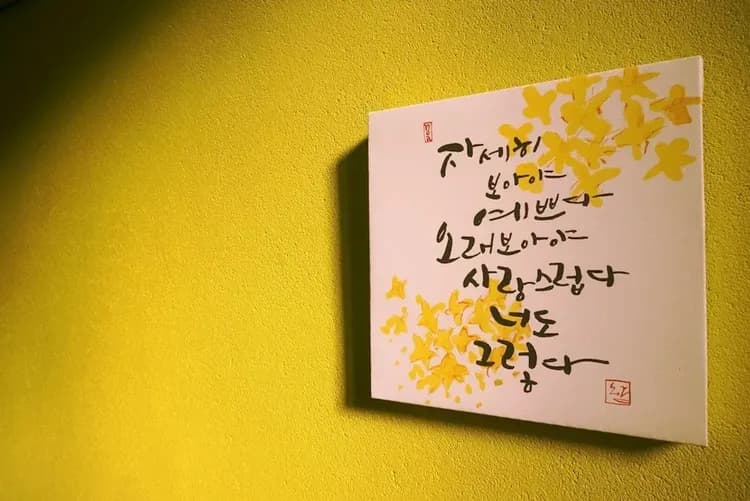 자세히
보아야
예쁘다
오래보아야
사랑스럽다
너도
그렇다